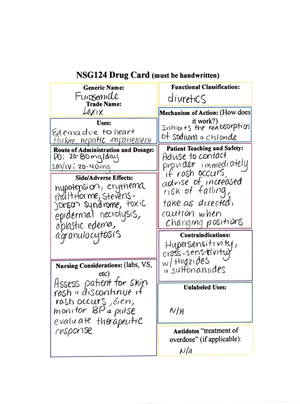 NSG124 Drug Card (must be handwritten)
Generic Name:
Furosemide
Trade Name:
Lasix
Uses:
Edema due to heart
failure, hepatic impairement
Route of Administration and Dosage:
PO: 20-80mg/day
IM/IV: 20-40mg
Side/Adverse Effects:
hypotension, erythema
multiforme, stevens-
jonson syndrome, toxic
epidermal necrolysis,
aplastic edema,
agranulocytosis
Nursing Considerations: (labs, VS,
etc)
Assess patient for skin
rash & discontinue if
rash occurs,
monitor BP & pulse
evaluate therapeutic
response
Functional Classification:
diuretics
Mechanism of Action: (How does
it work?)
Inhibits the reabsorption
of sodium & chloride
Patient Teaching and Safety:
Advise to contact
provider immediately
if rash occurs,
advise of increased
risk of falling,
take as directed,
caution when
changing positions
Contraindications:
Hypersensitivity,
cross-sensitivity
w/ thyzides
& sulfonamides
Unlabeled Uses:
N/A
Antidotes "treatment of
overdose" (if applicable):
N/A